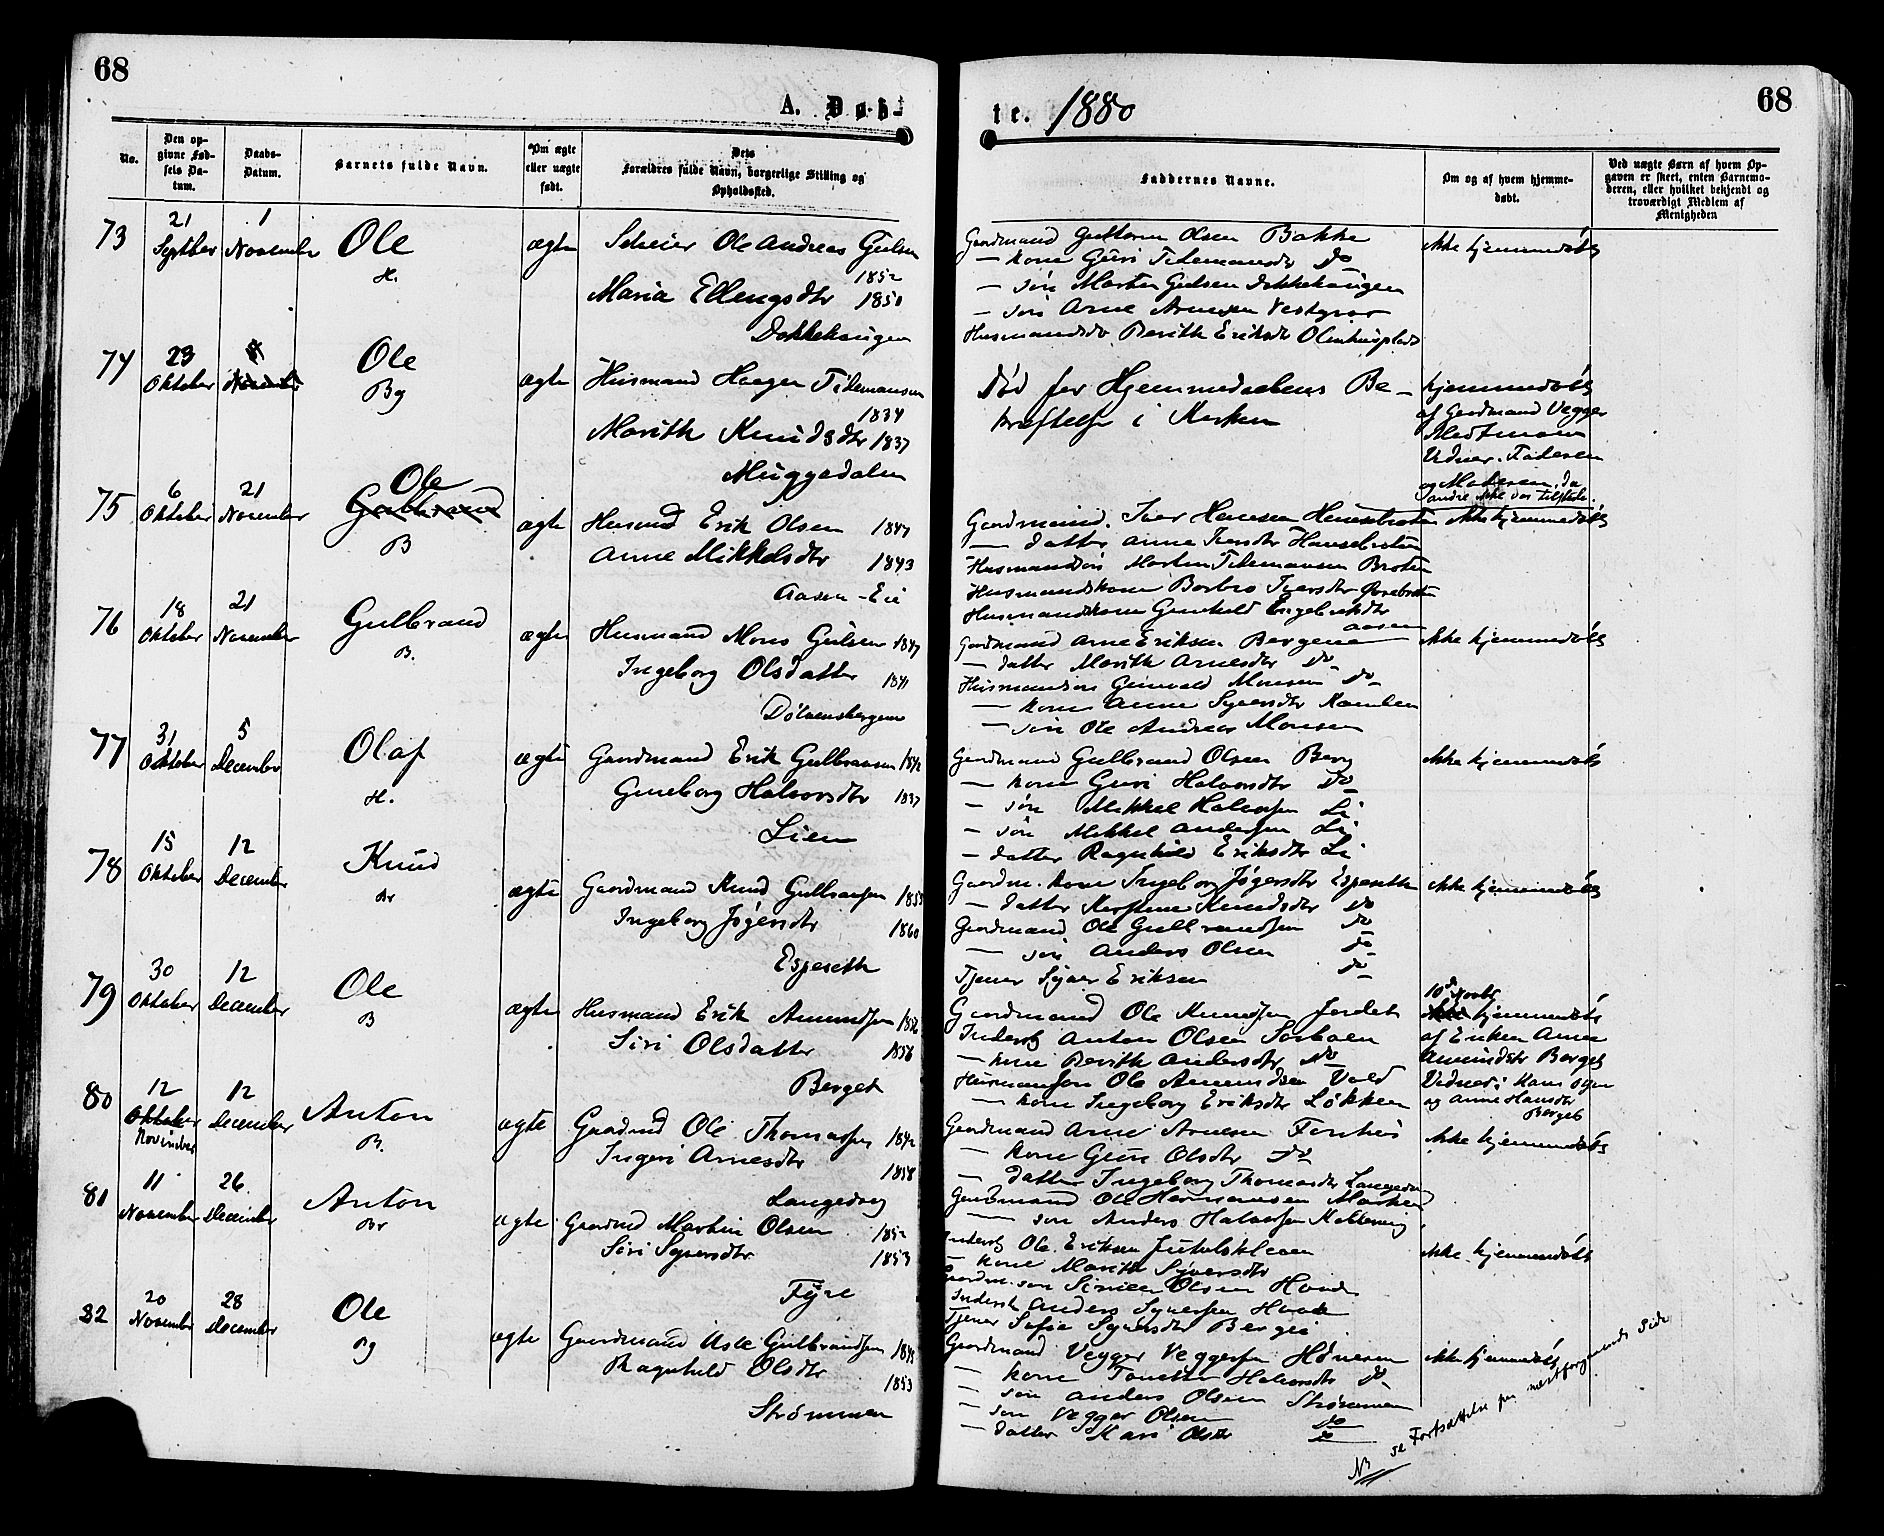 68
A. Døb-
te. 1880
68
No.
Den op-
givne Fød-
sels Da-
tum.
Daabs-
Datum.
Barnets fulde Navn.
Om ægte
eller uægte
født.
Dets
Forældres fulde Navn, borgerlige Stilling og
Opholdssted.
Faddernes Navne.
Om og af hvem hjemme-
døbt.
Ved uægte Børn af hvem Op-
gaven er skeet, enten Barnemo-
deren, eller hvilket bekjendt og
troværdigt Medlem af
Menigheden
73
21
Septber
1
November
Ole
H.
ægte
Ole Andreas Gulsen
1852
Maria Ellengsdtr 1850
Dokkehaugen
Gaardmand Guttorm Olsen Bakke
— kone Guri Tidemansdtr do
— søn Morten Gulsen Dokkehaugen
— søn Arne Arnesen
Husmandsdtr Berith Eriksdtr
ikke hjemmedøbt
74
23
Oktober
November
Ole
Bg
ægte
Husmand Haagen Tidemansen
1834
Marith Knudsdtr 1837
Muggedalen
Død før Hjemmedaabens Be-
kræftelse i Kirken
hjemmedøbt
af Gaardmand Vegger
Vidner: Faderen
og Moderen, da
andre ikke var tilstede.
75
6
Oktober
21
November
Ole
Gulbrand
B
ægte
Husmd Erik Olsen 1847
Anne Mikkelsdtr 1843
Aasen-Eie
Gaardmand Iver Hansen
— datter Anne Iversdtr
Husmandssøn Morten Tidemansen Braten
Husmandskone Barbro Iversdtr
Husmandskone Gunhild Engebretsdtr
Aasen
ikke hjemmedøbt
76
18
Oktober
21
November
Gulbrand
B.
ægte
Husmand Mons Gulsen 1847
Ingeborg Olsdatter 1841
Gaardmand Arne Eriksen Bergene
— datter Marith Arnesdtr do
Husmandssøn Gunvald Monsen do
— kone Anne Syversdtr
— søn Ole Andreas Monsen
ikke hjemmedøbt
77
31
Oktober
5
December
Olaf
H.
ægte
Gaardmand Erik Gulbransen 1842
Guneborg Halvorsdtr 1837
Lien
Gaardmand Gulbrand Olsen Berg
— kone Guri Halvorsdtr do
— søn Mikkel Halvorsen Li
— søn Mikkel Andersen Li
— datter Ragnhild Eriksdtr Li
ikke hjemmedøbt
78
15
Oktober
12
December
Knud
Br
ægte
Gaardmand Knud Gulbransen 1853
Ingeborg Jøgersdtr 1860
Espeseth
Gaardm. kone Ingeborg Jøgersdtr Espeseth
— datter Kirstine Knudsdtr do
Gaardmand Ole Gulbrandsen do
— søn Anders Olsen do
Tjener Syver Eriksen do
ikke hjemmedøbt
79
30
Oktober
12
December
Ole
B
ægte
Husmand Erik Amundsen 1852
Siri Olsdatter 1856
Berget
Gaardmand Ole Knudsen Jordet
Inderst Anton Olsen
— kone Berith Andersdtr do
Husmandssøn Ole Amundsen
— kone Ingeborg Eriksdtr Løkken
hjemmedøbt
af Enken Anne
Amundsdtr Berget
Vidner:
og Anne Hansdtr
Berget
80
12
Oktober
November
12
December
Anton
B.
ægte
Gaardmd Ole Thomassen 1842
Ingeri Arnesdtr 1858
Langedrag
Gaardmand Arne Arnesen
— kone Guri Olsdtr do
— datter Ingeborg Thomasdtr Langedrag
ikke hjemmedøbt
81
11
November
26
December
Anton
Br
ægte
Gaardmd Martin Olsen 1852
Siri Syversdtr 1853
Fyre
Gaardmand Ole Hermansen
— søn Anders Halvorsen
Inderst Ole Eriksen
— kone Marith Syversdtr
Gaardm. søn Simen Olsen
Inderst Anders Syversen
Tjener Sofie Syversdtr Berget
ikke hjemmedøbt
82
20
November
28
December
Ole
Bg
ægte
Gaardmand Asle Gulbrandsen 1845
Ragnhild Olsdtr 1853
Strømmen
Gaardmand Vegger Veggersen
— kone Halvorsdtr do
— søn Anders Olsen Strømmen
— søn Vegger Olsen do
— datter Kari Olsdtr do
ikke hjemmedøbt
NB se Fortsættelse paa næstforegaaende Side